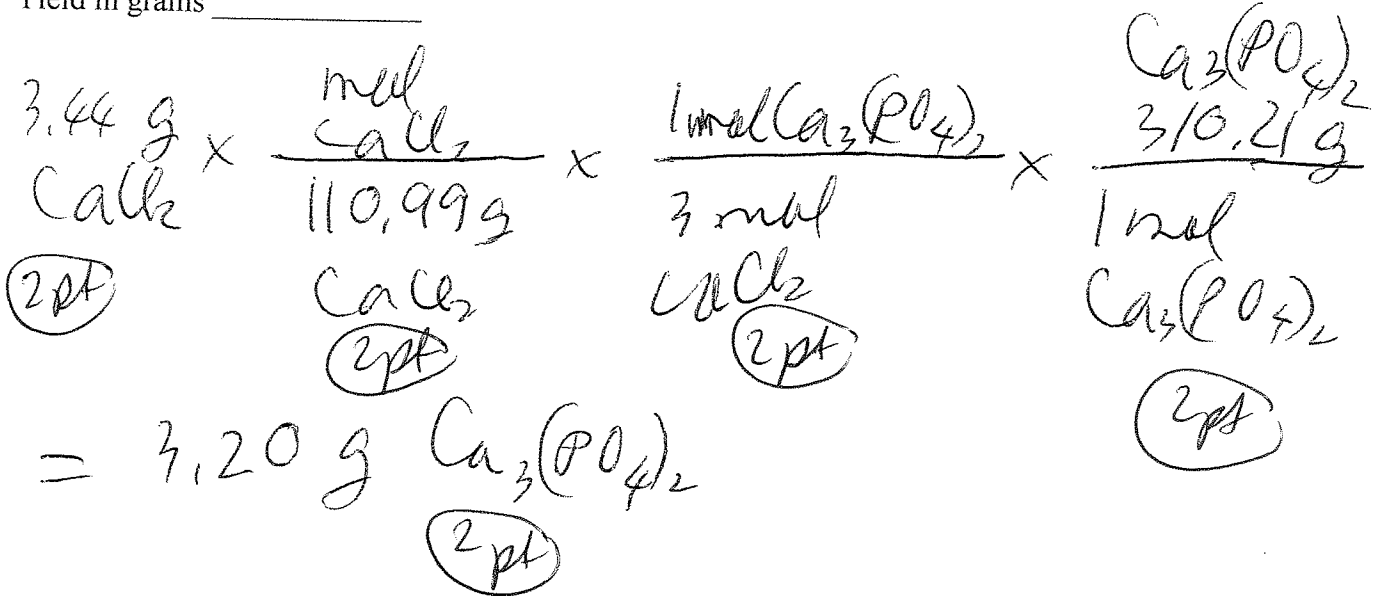 Yield in grams ____________
3.44 g CaCl₂ × mol CaCl₂ / 110.99 g CaCl₂ × 1 mol Ca₃(PO₄)₂ / 3 mol CaCl₂ × Ca₃(PO₄)₂ 310.21 g / 1 mol Ca₃(PO₄)₂
2pt 2pt 2pt 2pt
= 3.20 g Ca₃(PO₄)₂
2pt